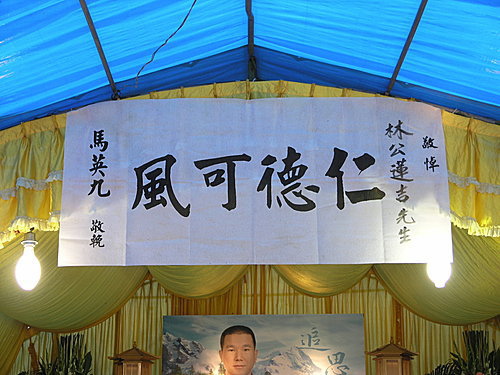 敬悼
林公蓮吉先生
仁德可風
馬英九 敬輓
追思